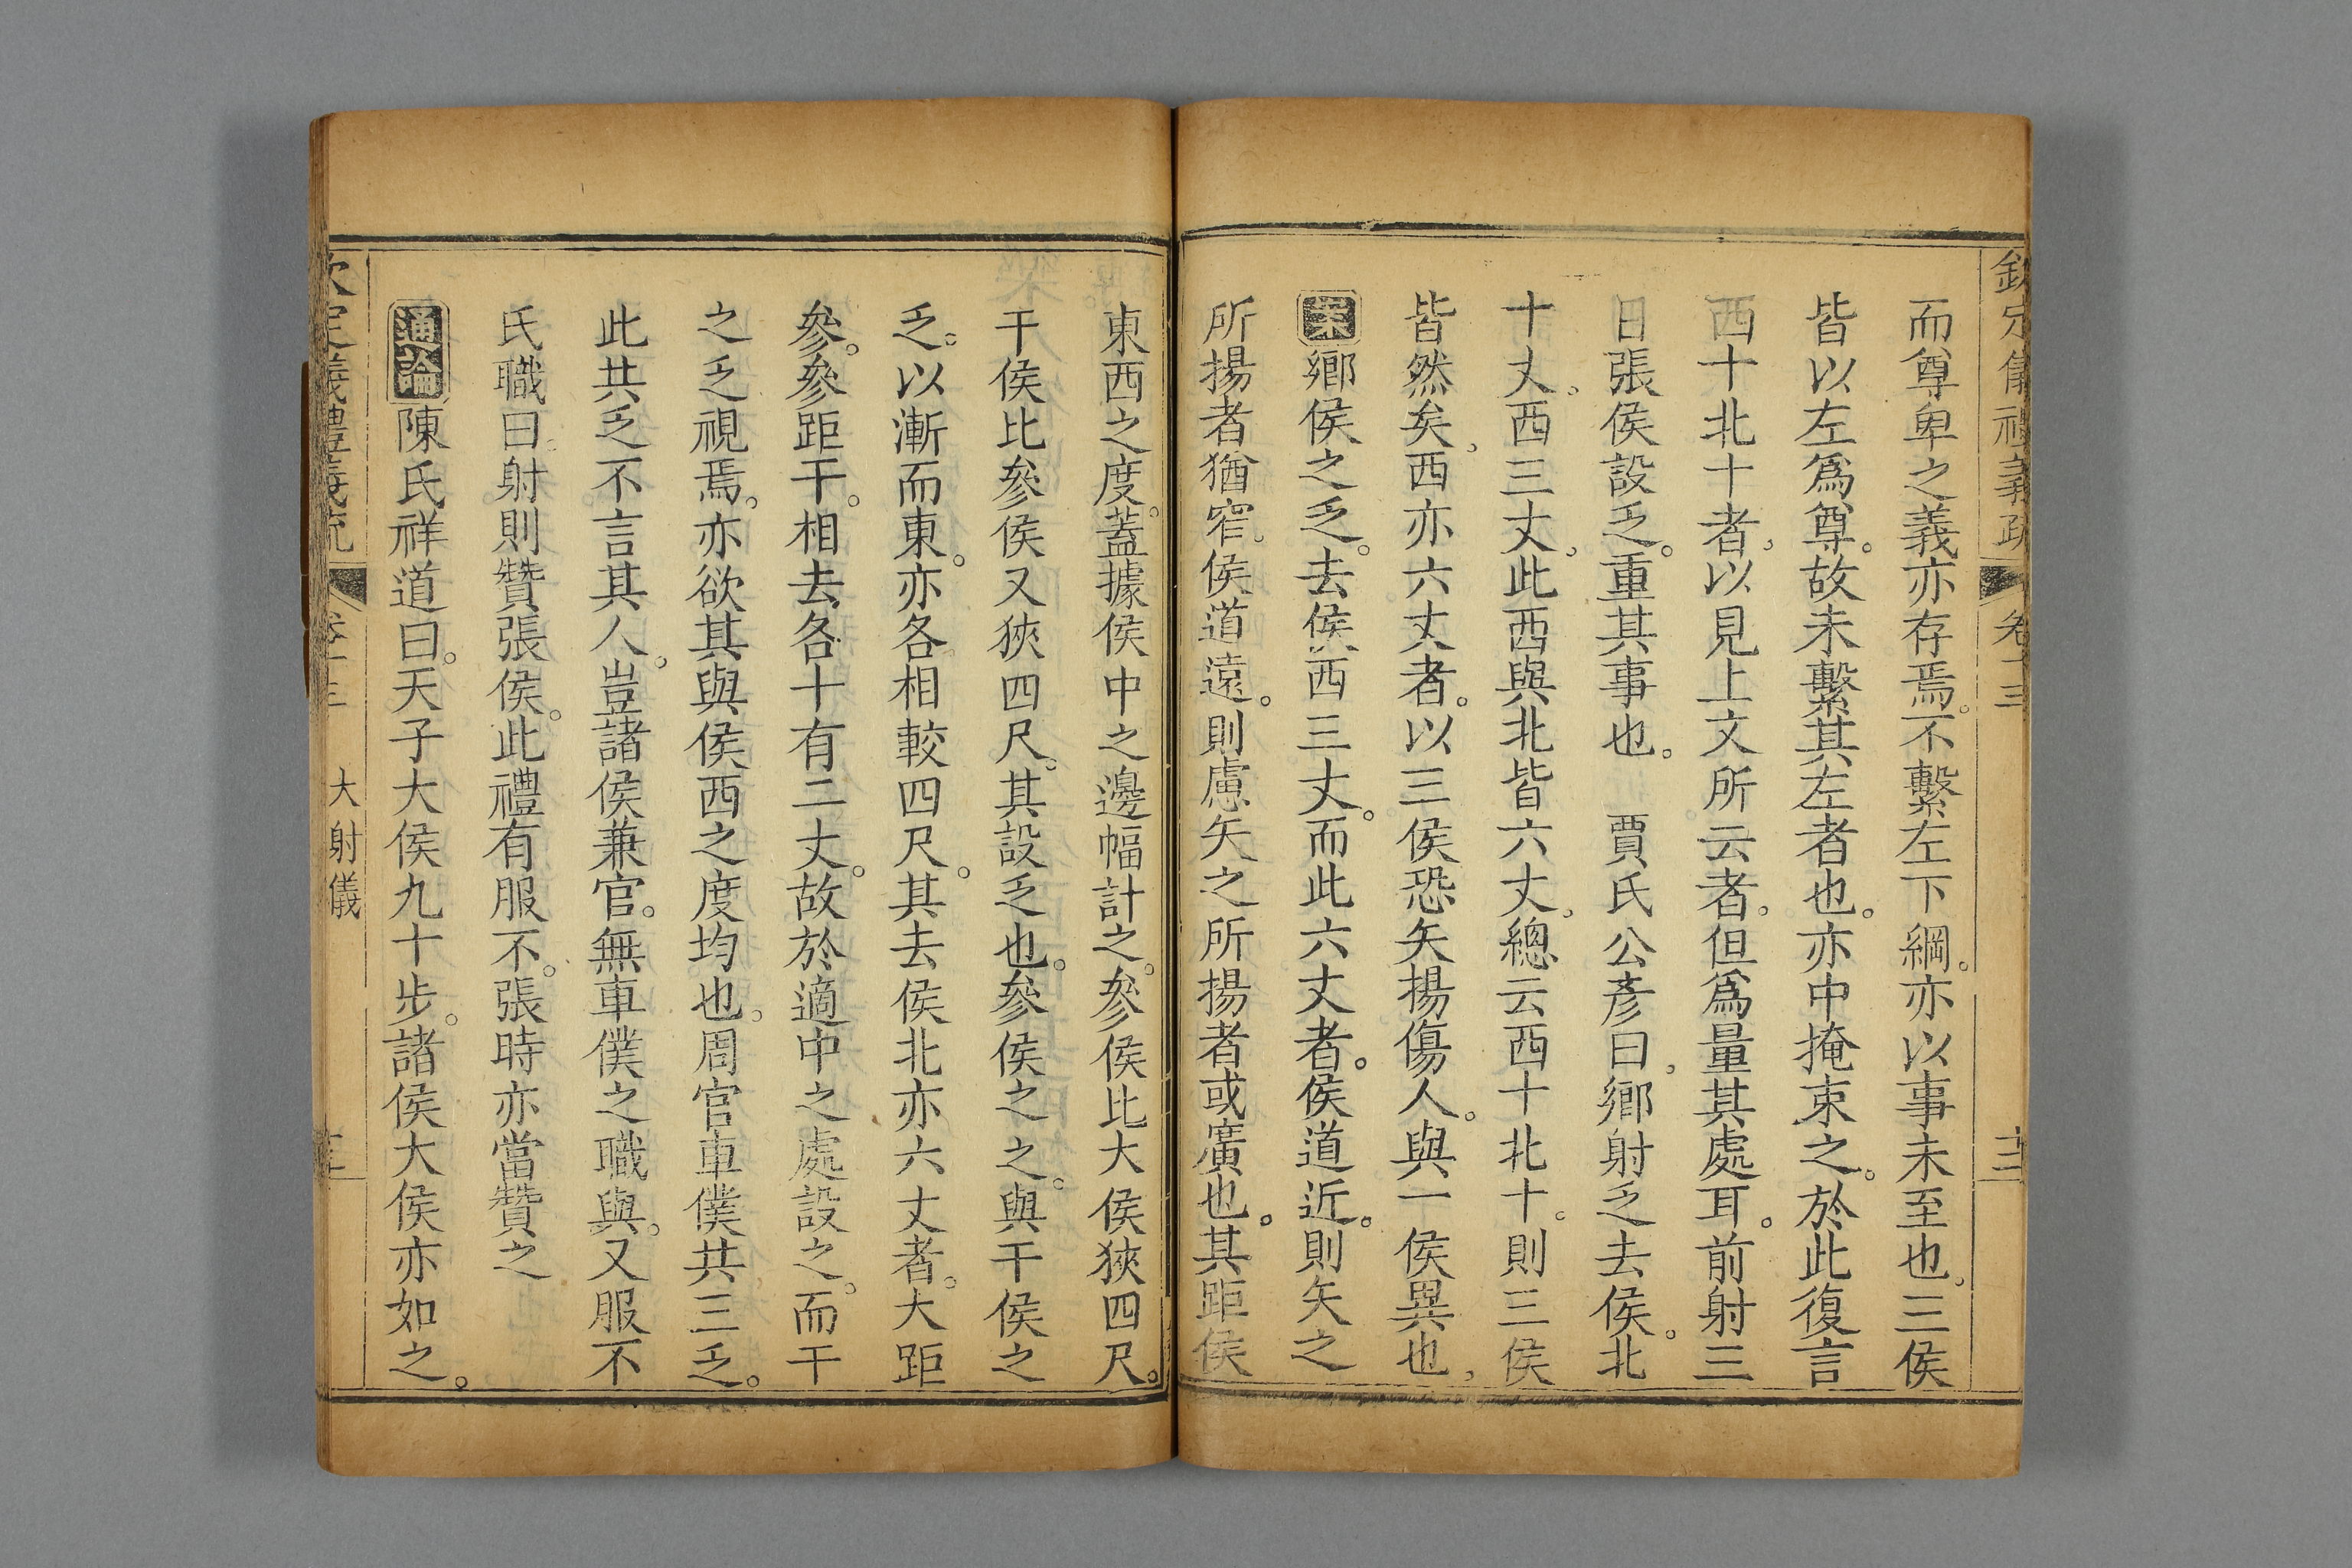 欽定儀禮義疏 卷十三 十二
而尊卑之義亦存焉。不繫左下綱。亦以事未至也。三侯
皆以左爲尊。故未繫其左者也。亦中掩束之。於此復言
西十北十者。以見上文所云者。但爲量其處耳。前射三
日張侯設乏。重其事也。 賈氏公彥曰。鄉射乏去侯。北
十丈。西三丈。此西與北皆六丈。總云西十北十。則三侯
皆然矣。西亦六丈者。以三侯恐矢揚傷人。與一侯異也。
案鄉侯之乏。去侯西三丈。而此六丈者。侯道近。則矢之
所揚者猶窄。侯道遠。則慮矢之所揚者或廣也。其距侯
東西之度。蓋據侯中之邊幅計之。參侯比大侯狹四尺。
干侯比參侯又狹四尺。其設乏也。參侯之之。與干侯之
乏。以漸而東。亦各相較四尺。其去侯北亦六丈者。大距
參。參距干。相去各十有二丈。故於適中之處設之。而干
之乏視焉。亦欲其與侯西之度均也。周官車僕共三乏。
此共乏不言其人。豈諸侯兼官。無車僕之職與。又服不
氏職曰。射則贊張侯。此禮有服不。張時亦當贊之
通論陳氏祥道曰。天子大侯九十步。諸侯大侯亦如之。
欽定儀禮義疏 卷十三 大射儀 十三